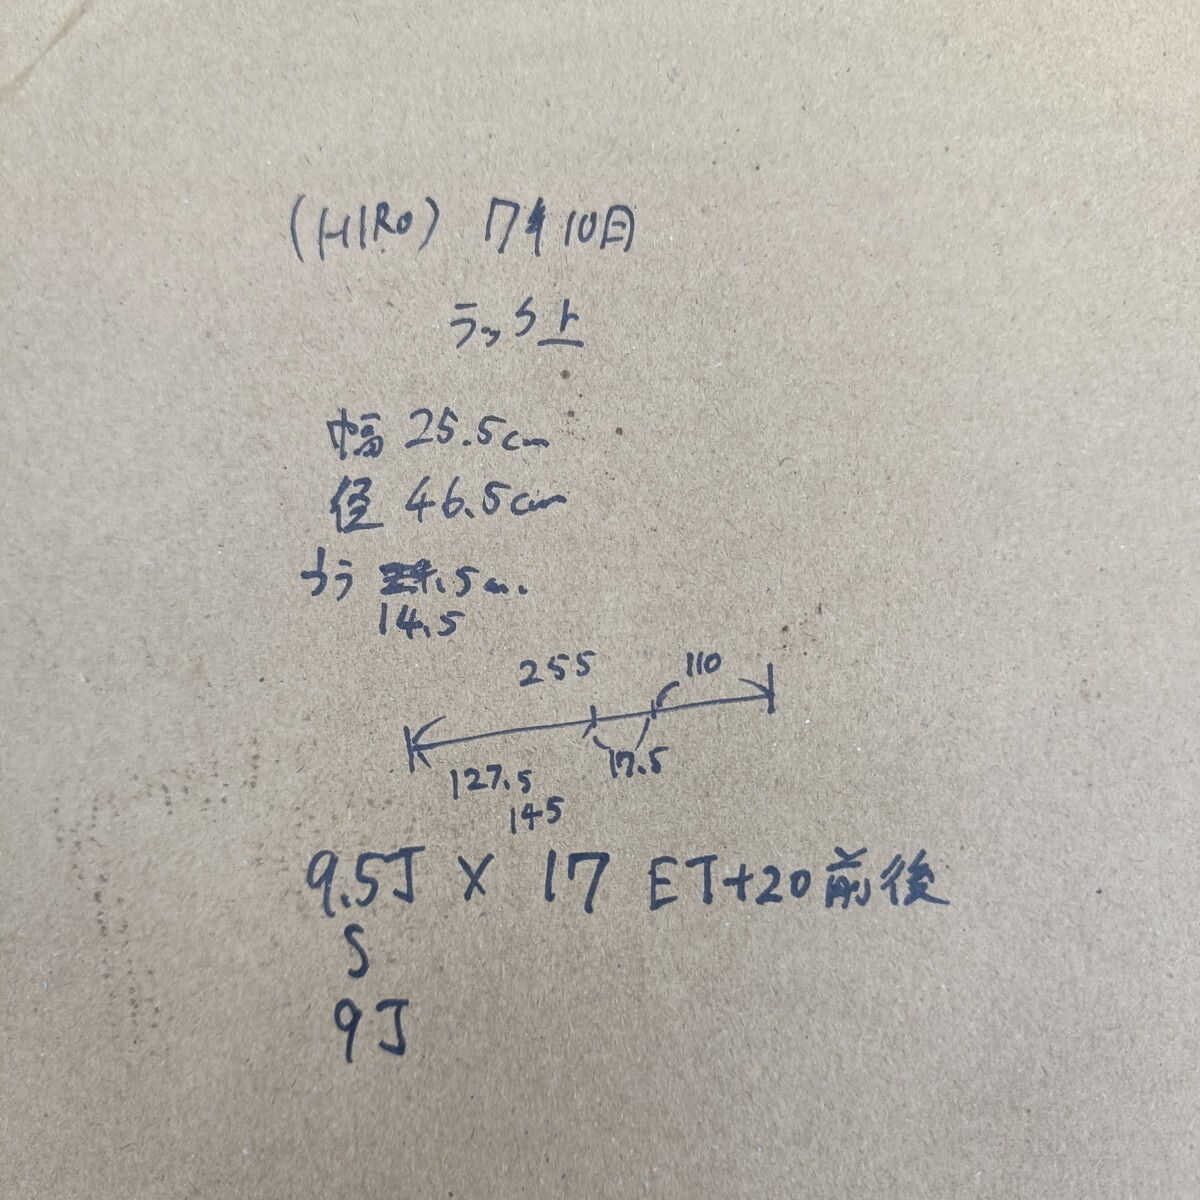 (HIRO) 17 10日
ラック上
幅 25.5cm
径 46.5cm
ウラ .5cm.
14.5
255 110
127.5 17.5
145
9.5J × 17 ET+20前後
S
9J